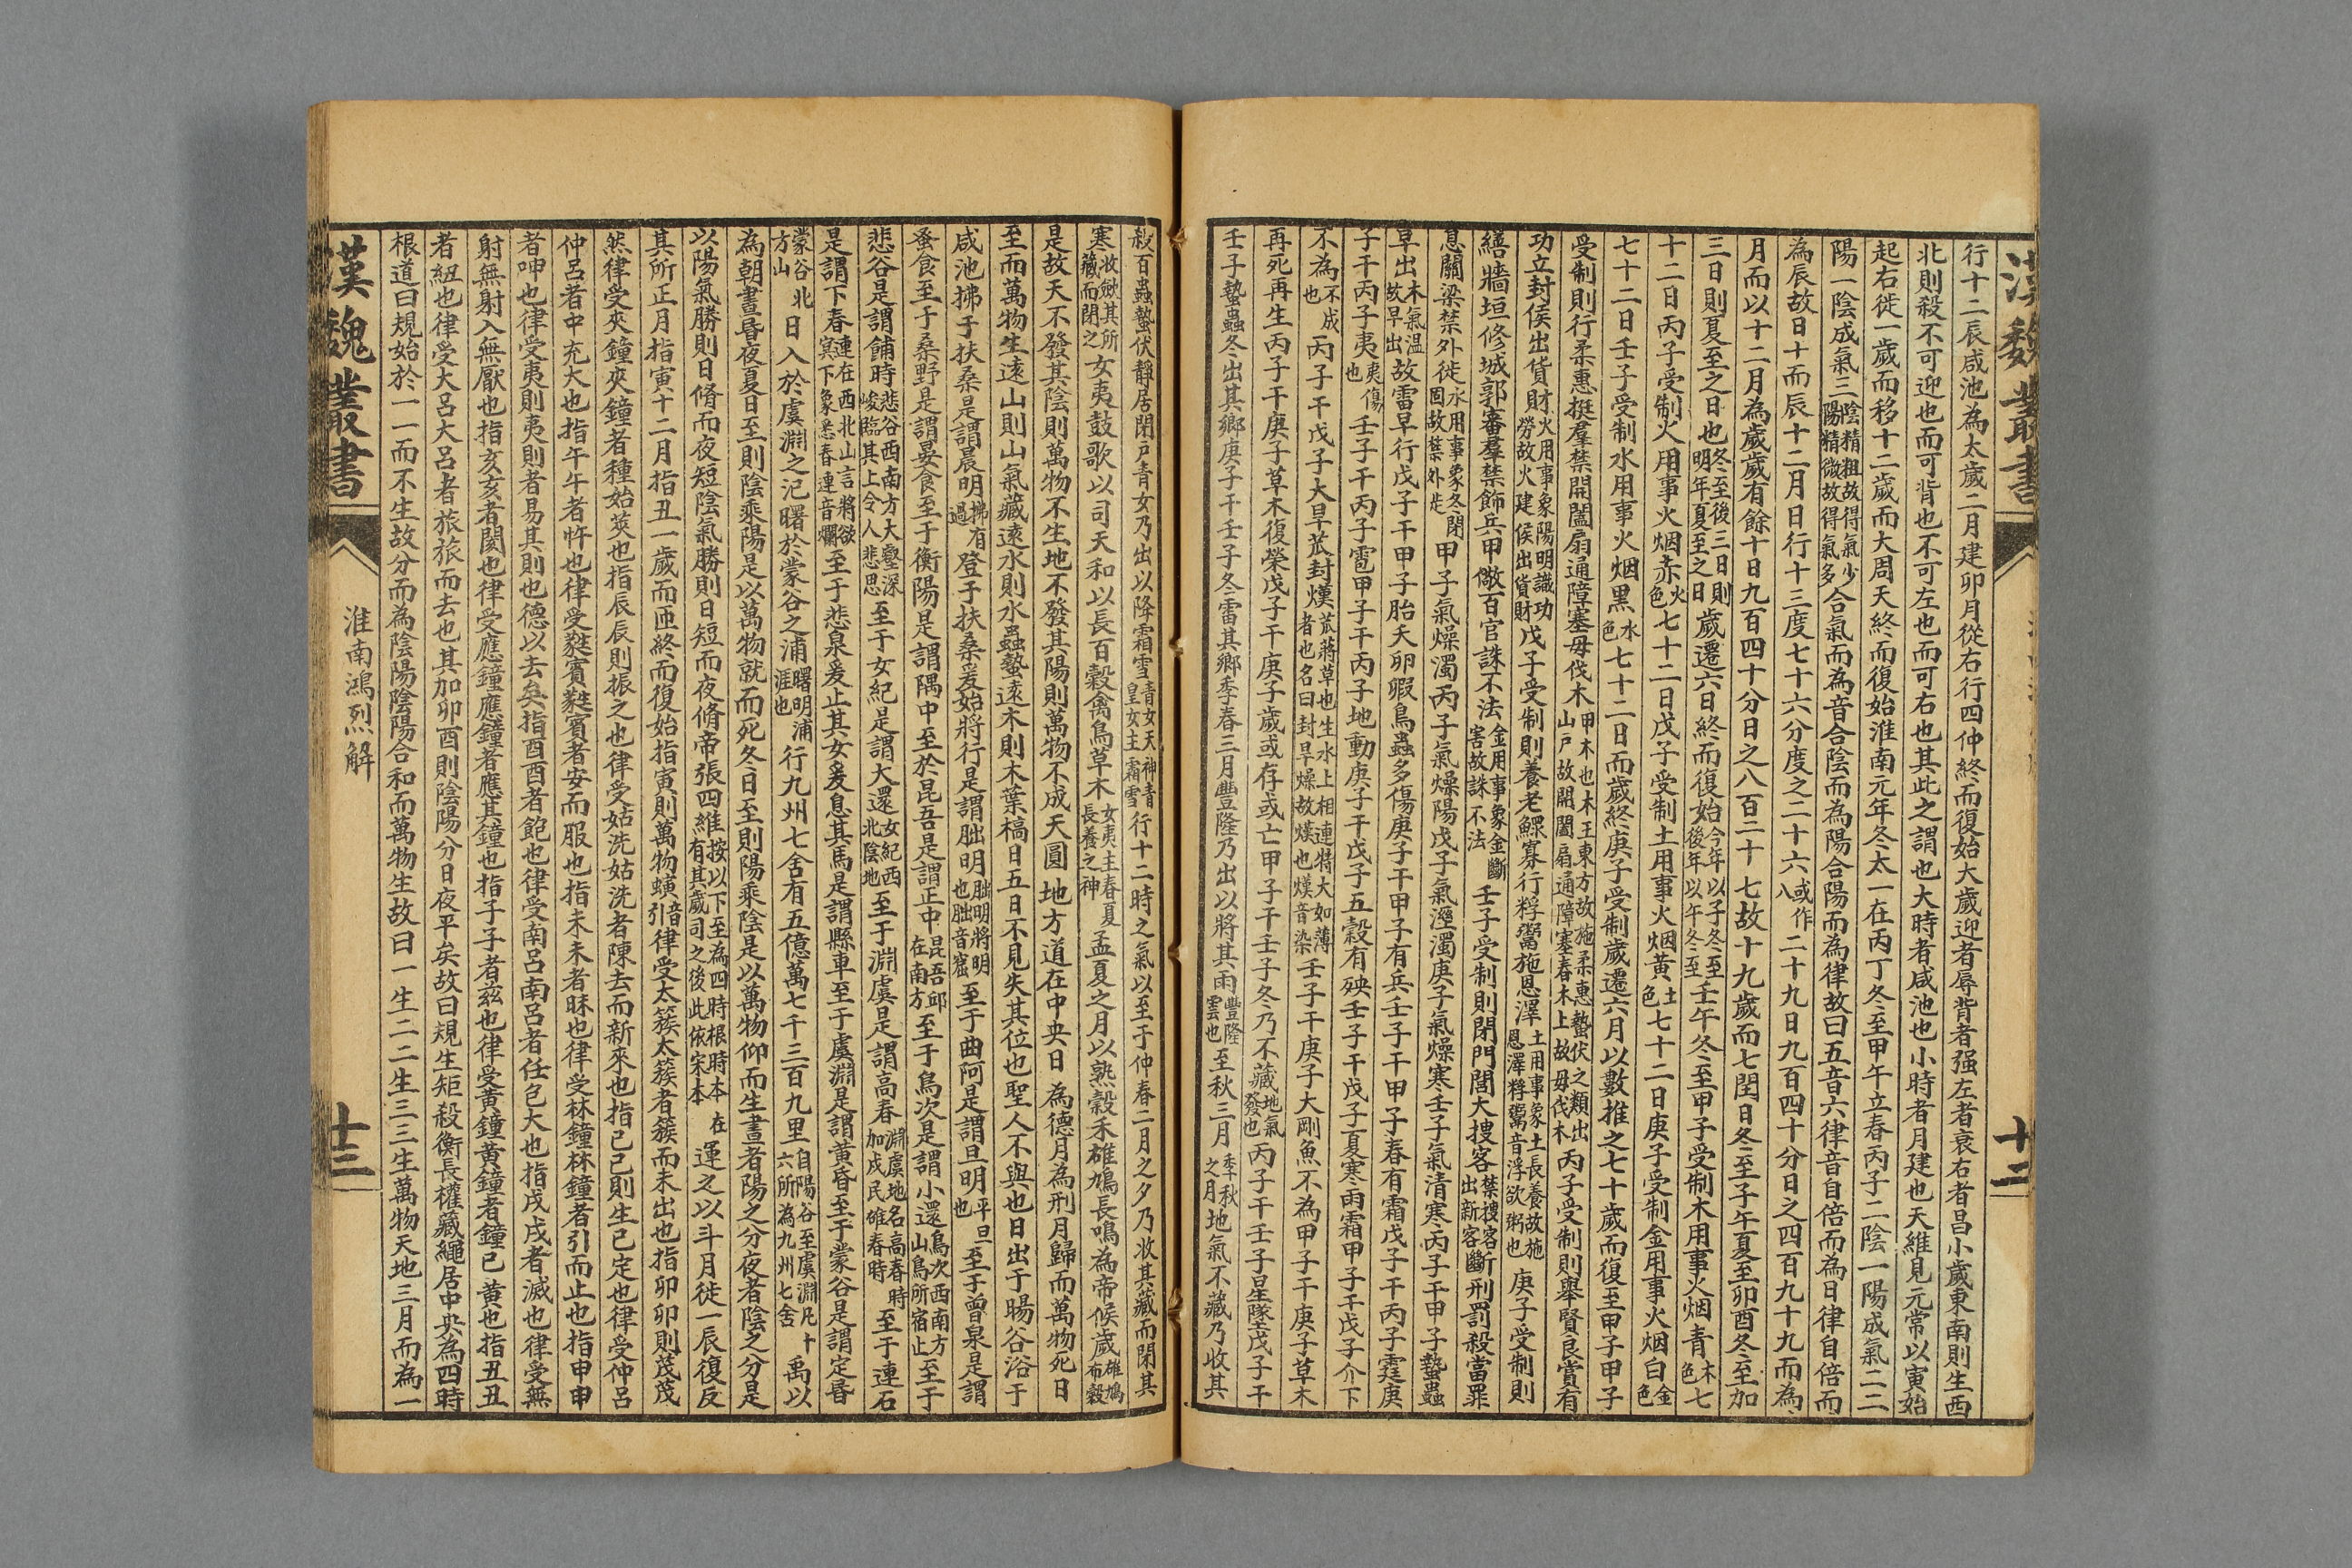 漢魏叢書
十二
行十二辰咸池為太歲二月建卯月從右行四仲終而復始大歲迎者辱背者强左者衰右者昌小歲東南則生西
北則殺不可迎也而可背也不可左也而可右也其此之謂也大時者咸池也小時者月建也天維見元常以寅始
起右徙一歲而移十二歲而大周天終而復始淮南元年冬太一在丙丁冬至甲午立春丙子二陰一陽成氣二二
陽一陰成氣三陰精粗故得氣少陽精微故得氣多合氣而為音合陰而為陽合陽而為律故曰五音六律音自倍而為日律自倍而
為辰故日十而辰十二月日行十三度七十六分度之二十六或作八二十九日九百四十分日之四百九十九而為
月而以十二月為歲歲有餘十日九百四十分日之八百二十七故十九歲而七閏日冬至子午夏至卯酉冬至加
三日則夏至之日也冬至後三日則明年夏至之日歲遷六日終而復始今年以子冬至後年以午冬至壬午冬至甲子受制木用事火烟青木色七
十二日丙子受制火用事火烟赤火色七十二日戊子受制土用事火烟黄土色七十二日庚子受制金用事火烟白金色
七十二日壬子受制水用事火烟黑水色七十二日而歲終庚子受制歲遷六月以數推之七十歲而復至甲子甲子
受制則行柔惠挺羣禁開闔扇通障塞毋伐木甲木也木王東方故施柔惠蟄伏之類出山戸故開闔扇通障塞春木上故毋伐木丙子受制則舉賢良賞有
功立封侯出貨財火用事象陽明識功勞故火建侯出貨財戊子受制則養老鰥寡行稃鬻施恩澤土用事象土長養故施恩澤稃鬻音浮欲粥也庚子受制則
繕牆垣修城郭審羣禁飾兵甲儆百官誅不法金用事象金斷害故誅不法壬子受制則閉門閭大搜客禁搜客出新客斷刑罰殺當罪
息關梁禁外徙水用事象冬閉固故禁外徙甲子氣燥濁丙子氣燥陽戊子氣溼濁庚子氣燥寒壬子氣清寒丙子干甲子蟄蟲
早出木氣温故早出故雷早行戊子干甲子胎夭卵毈鳥蟲多傷庚子干甲子有兵壬子干甲子春有霜戊子干丙子霆庚
子干丙子夷夷傷也壬子干丙子雹甲子干丙子地動庚子干戊子五穀有殃壬子干戊子夏寒雨霜甲子干戊子介下
不為不成也丙子干戊子大旱苽封熯苽蔣草也生水上相連特大如薄者也名曰封旱燥故熯也熯音染壬子干庚子大剛魚不為甲子干庚子草木
再死再生丙子干庚子草木復榮戊子干庚子歲或存或亡甲子干壬子冬乃不藏地氣發也丙子干壬子星墜戊子干
壬子蟄蟲冬出其鄉庚子干壬子冬雷其鄉季春三月豐隆乃出以將其雨豐隆雲也至秋三月季秋之月地氣不藏乃收其
殺百蟲蟄伏靜居閉戸青女乃出以降霜雪青女天神青皇女主霜雪行十二時之氣以至于仲春二月之夕乃收其藏而閉其
寒收斂其所藏而閉之女夷鼓歌以司天和以長百穀禽鳥草木女夷主春夏長養之神孟夏之月以熟穀禾雄鳩長鳴為帝候歲雄鳩布穀
是故天不發其陰則萬物不生地不發其陽則萬物不成天圓地方道在中央日為德月為刑月歸而萬物死日
至而萬物生遠山則山氣藏遠水則水蟲蟄遠木則木葉槁日五日不見失其位也聖人不與也日出于暘谷浴于
咸池拂于扶桑是謂晨明拂有過登于扶桑爰始將行是謂朏明朏明將明也朏音窟至于曲阿是謂旦明平旦也至于曾泉是謂
蚤食至于桑野是謂晏食至于衡陽是謂隅中至於昆吾是謂正中昆吾邱在南方至于鳥次是謂小還鳥次西南方山鳥所宿止至于
悲谷是謂餔時悲谷西南方大壑深峻臨其上令人悲思至于女紀是謂大還女紀西北陰地至于淵虞是謂高舂淵虞地名高舂時加戍民碓舂時至于連石
是謂下舂連在西北山言將欲冥下象悉舂連音爛至于悲泉爰止其女爰息其馬是謂縣車至于虞淵是謂黄昏至于蒙谷是謂定昏
蒙谷北方山日入於虞淵之汜曙於蒙谷之浦曙明浦涯也行九州七舍有五億萬七千三百九里自陽谷至虞淵凡十六所為九州七舍禹以
為朝晝昏夜夏日至則陰乘陽是以萬物就而死冬日至則陽乘陰是以萬物仰而生晝者陽之分夜者陰之分是
以陽氣勝則日脩而夜短陰氣勝則日短而夜脩帝張四維按以下至為四時根時本在有其歲司之後此依宋本運之以斗月徙一辰復反
其所正月指寅十二月指丑一歲而匝終而復始指寅則萬物螾音引律受太簇太簇者簇而未出也指卯卯則茂茂
然律受夾鐘夾鐘者種始莢也指辰辰則振之也律受姑洗姑洗者陳去而新來也指巳巳則生已定也律受仲呂
仲呂者中充大也指午午者忤也律受蕤賓蕤賓者安而服也指未未者昧也律受林鐘林鐘者引而止也指申申
者呻也律受夷則夷則者易其則也德以去矣指酉酉者飽也律受南呂南呂者任包大也指戌戌者滅也律受無
射無射入無厭也指亥亥者閡也律受應鐘應鐘者應其鐘也指子子者茲也律受黄鐘黄鐘者鐘已黄也指丑丑
者紐也律受大呂大呂者旅旅而去也其加卯酉則陰陽分日夜平矣故曰規生矩殺衡長權藏繩居中央為四時
根道曰規始於一一而不生故分而為陰陽陰陽合和而萬物生故曰一生二二生三三生萬物天地三月而為一
漢魏叢書
淮南鴻烈解
十三